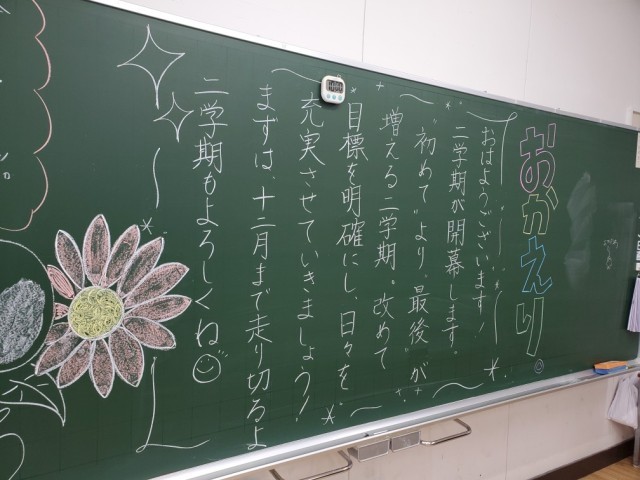 おかえり。
おはようございます!
二学期が開幕します。
"初めて"より"最後"が
増える二学期。改めて
目標を明確にし、日々を
充実させていきましょう!
まずは、十二月まで走り切るよ
二学期もよろしくね